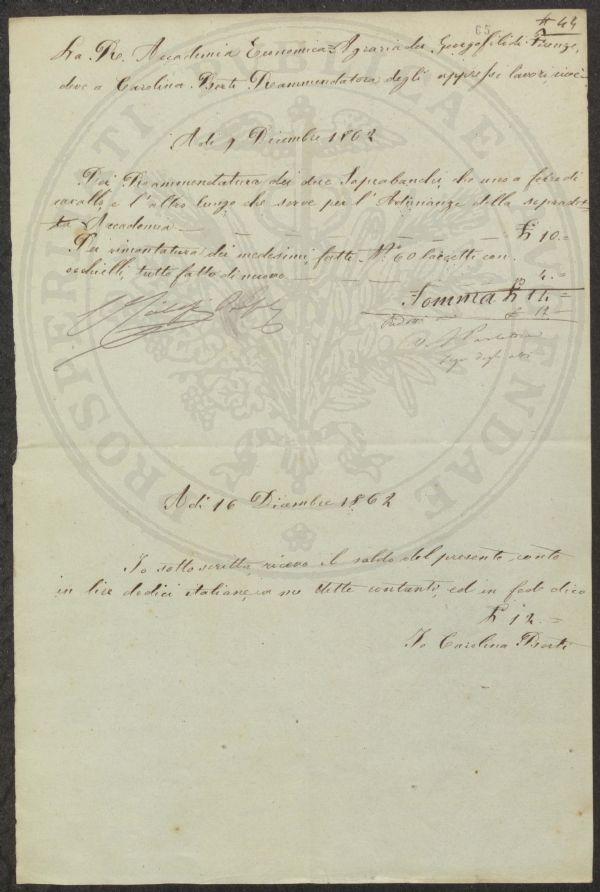 65
44
La R. Accademia Economica Agraria dei Georgofili di Firenze,
deve a Carolina Rammendatora degli appresso lavori, cioè
A di 9 Dicembre 1862
Per Rammendatura dei due Soprabanchi, che uno a ferro di
cavallo, e l'altro lungo che serve per l'Adunanze della sopradet-
ta Accademia £ 10.=
Per rimontatura dei medesimi, fatti N.º 60 laccetti con
occhielli, tutto fatto di nuovo 4.=
Somma £ 14=
£ 12.=
Segr. degli atti
A di 16 Dicembre 1862
Io sottoscritta, ricevo il saldo del presente conto
in lire dodici italiane, in no dette contanti, ed in fede dico
£ 12.=
Io Carolina
PROSPERITATI PUBLICAE AUGENDAE